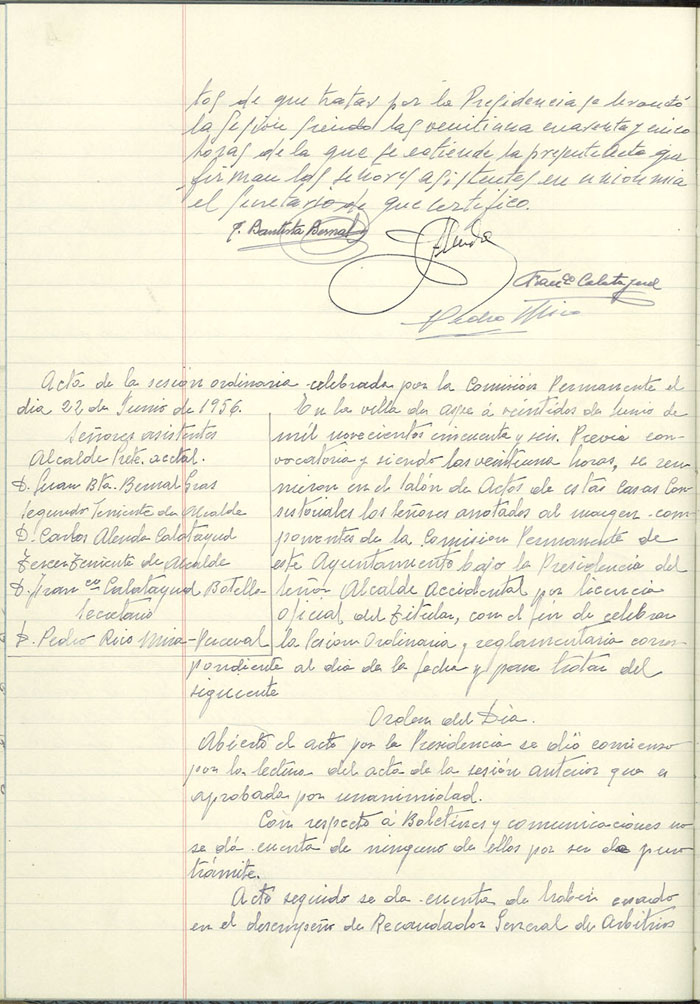 tos de que tratar por la Presidencia se levantó
la sesión siendo las veintiuna cuarenta y cinco
horas de la que se extiende la presente Acta que
firman los señores asistentes en
el Secretario de que certifico.
J. Bautista Bernal
Alenda
Franco Calatayud
Pedro Mira
Acta de la sesión ordinaria celebrada por la Comisión Permanente el
dia 22 de Junio de 1956.
Señores asistentes
Alcalde Pnte. acctal.
D. Juan Bta. Bernal Gras
Segundo Teniente de Alcalde
D. Carlos Alenda Calatayud
Tercer Teniente de Alcalde
D. Franco Calatayud Botella
Secretario
D. Pedro Rico Mira-Perceval
En la villa de Aspe á veintidos de Junio de
mil novecientos cincuenta y seis. Previa con-
vocatoria y siendo las veintiuna horas, se reu-
nieron en el Salón de Actos de estas Casas Con-
sistoriales los señores anotados al margen com-
ponentes de la Comision Permanente de
este Ayuntamiento bajo la Presidencia del
Señor Alcalde Accidental por licencia
Oficial del Titular, con el fin de celebrar
la Sesion Ordinaria, reglamentaria corres-
pondiente al dia de la fecha y para tratar del
siguiente
Orden del Dia.
Abierto el acto por la Presidencia se dió comienzo
por la lectura del acta de la sesión anterior que es
aprobada por unanimidad.
Con respecto á Boletines y comunicaciones no
se dá cuenta de ninguno de ellos por ser de puro
trámite.
Acto seguido se da cuenta de haber cesado
en el desempeño de Recaudador General de Arbitrios